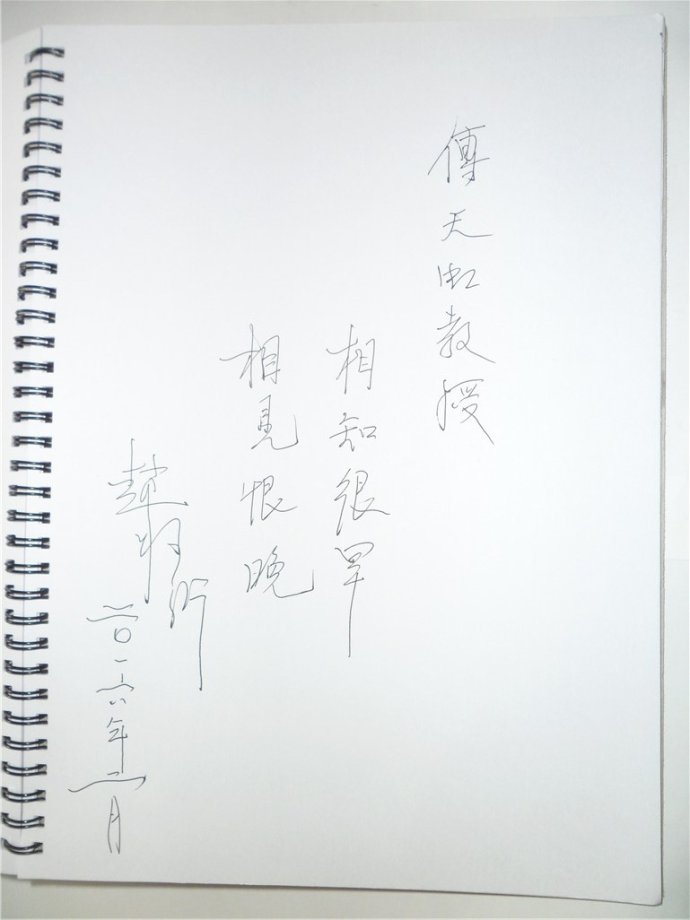 傅天虹教授
相知很早
相見恨晚
二〇一六年二月